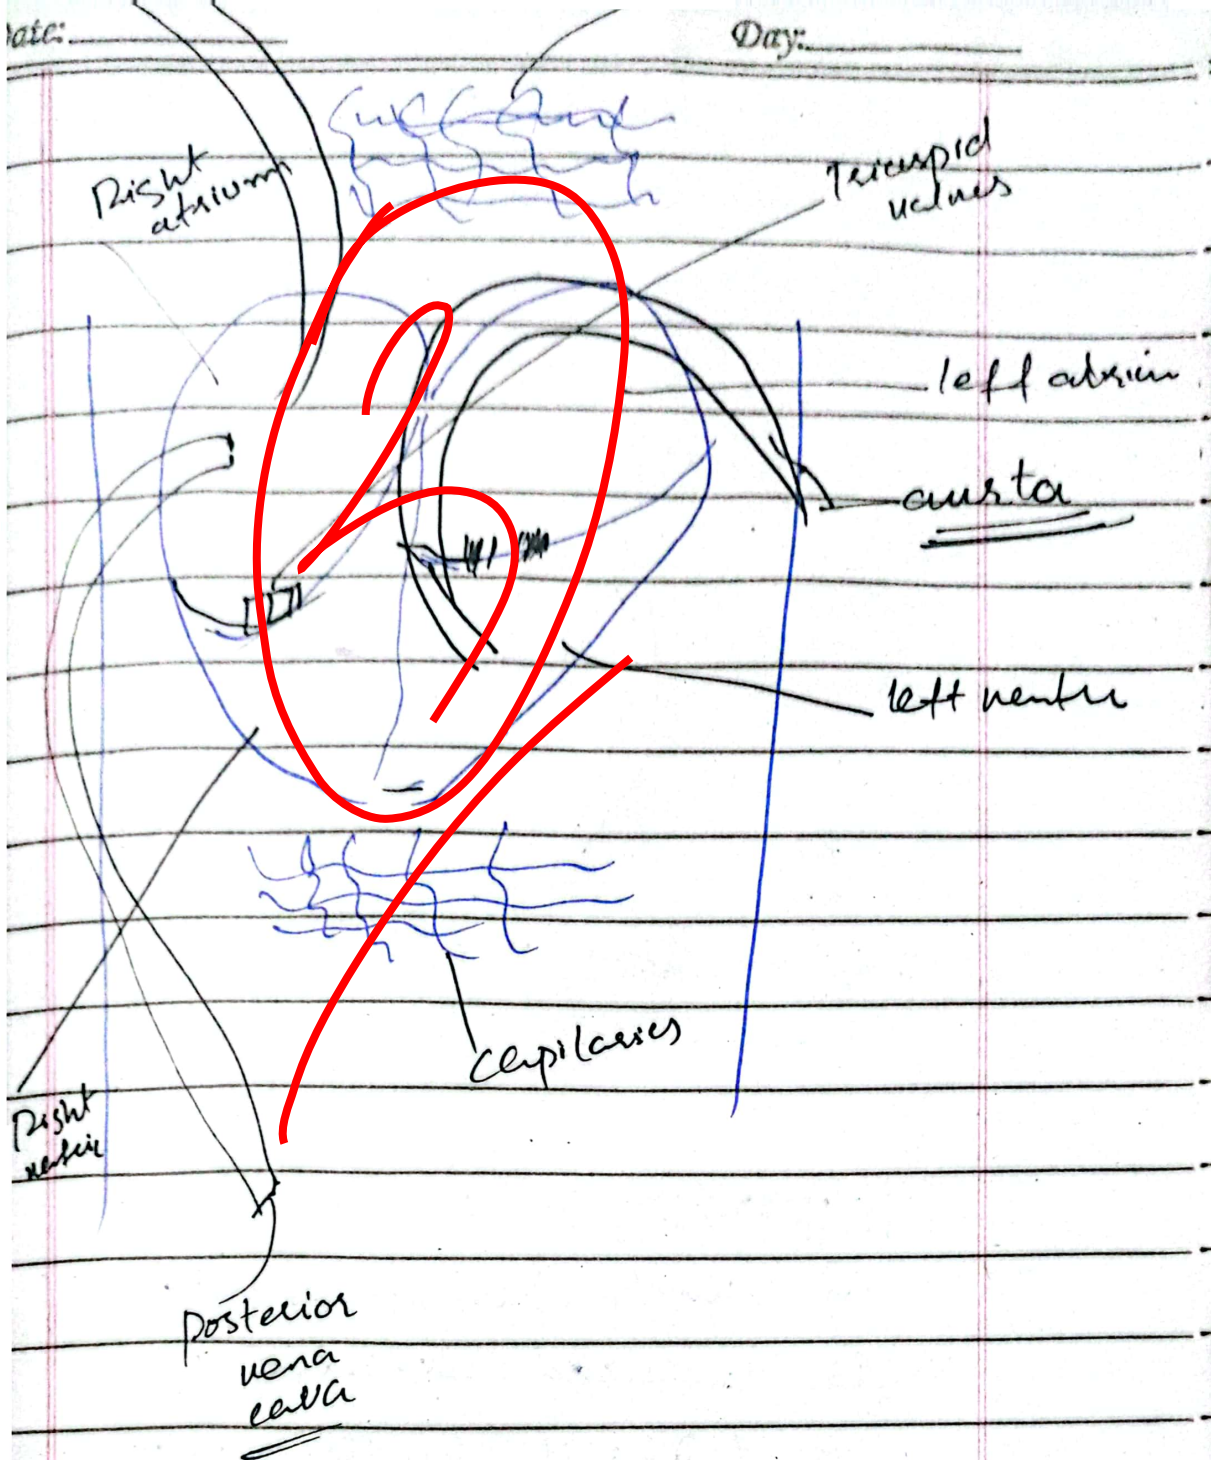 Date:
Day:
Right
atrium
Tricuspid
valves
left atrium
aurta
left ventu
Capilaries
Right
Posterior
vena
cava